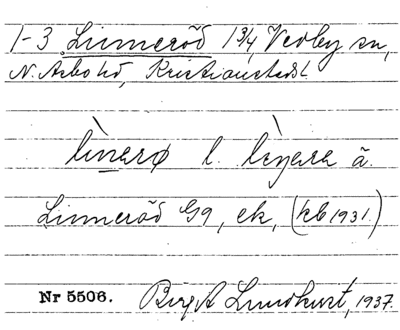 1-3 Linneröd 1 3/4, Vedby sn,
N. Åsbo hd, Kristianstads l.
lìnarø l. lìŋara ä.
Linneröd Gg, ek, (kb 1931.)
Nr 5506. Birgit Lundhurst, 1937.